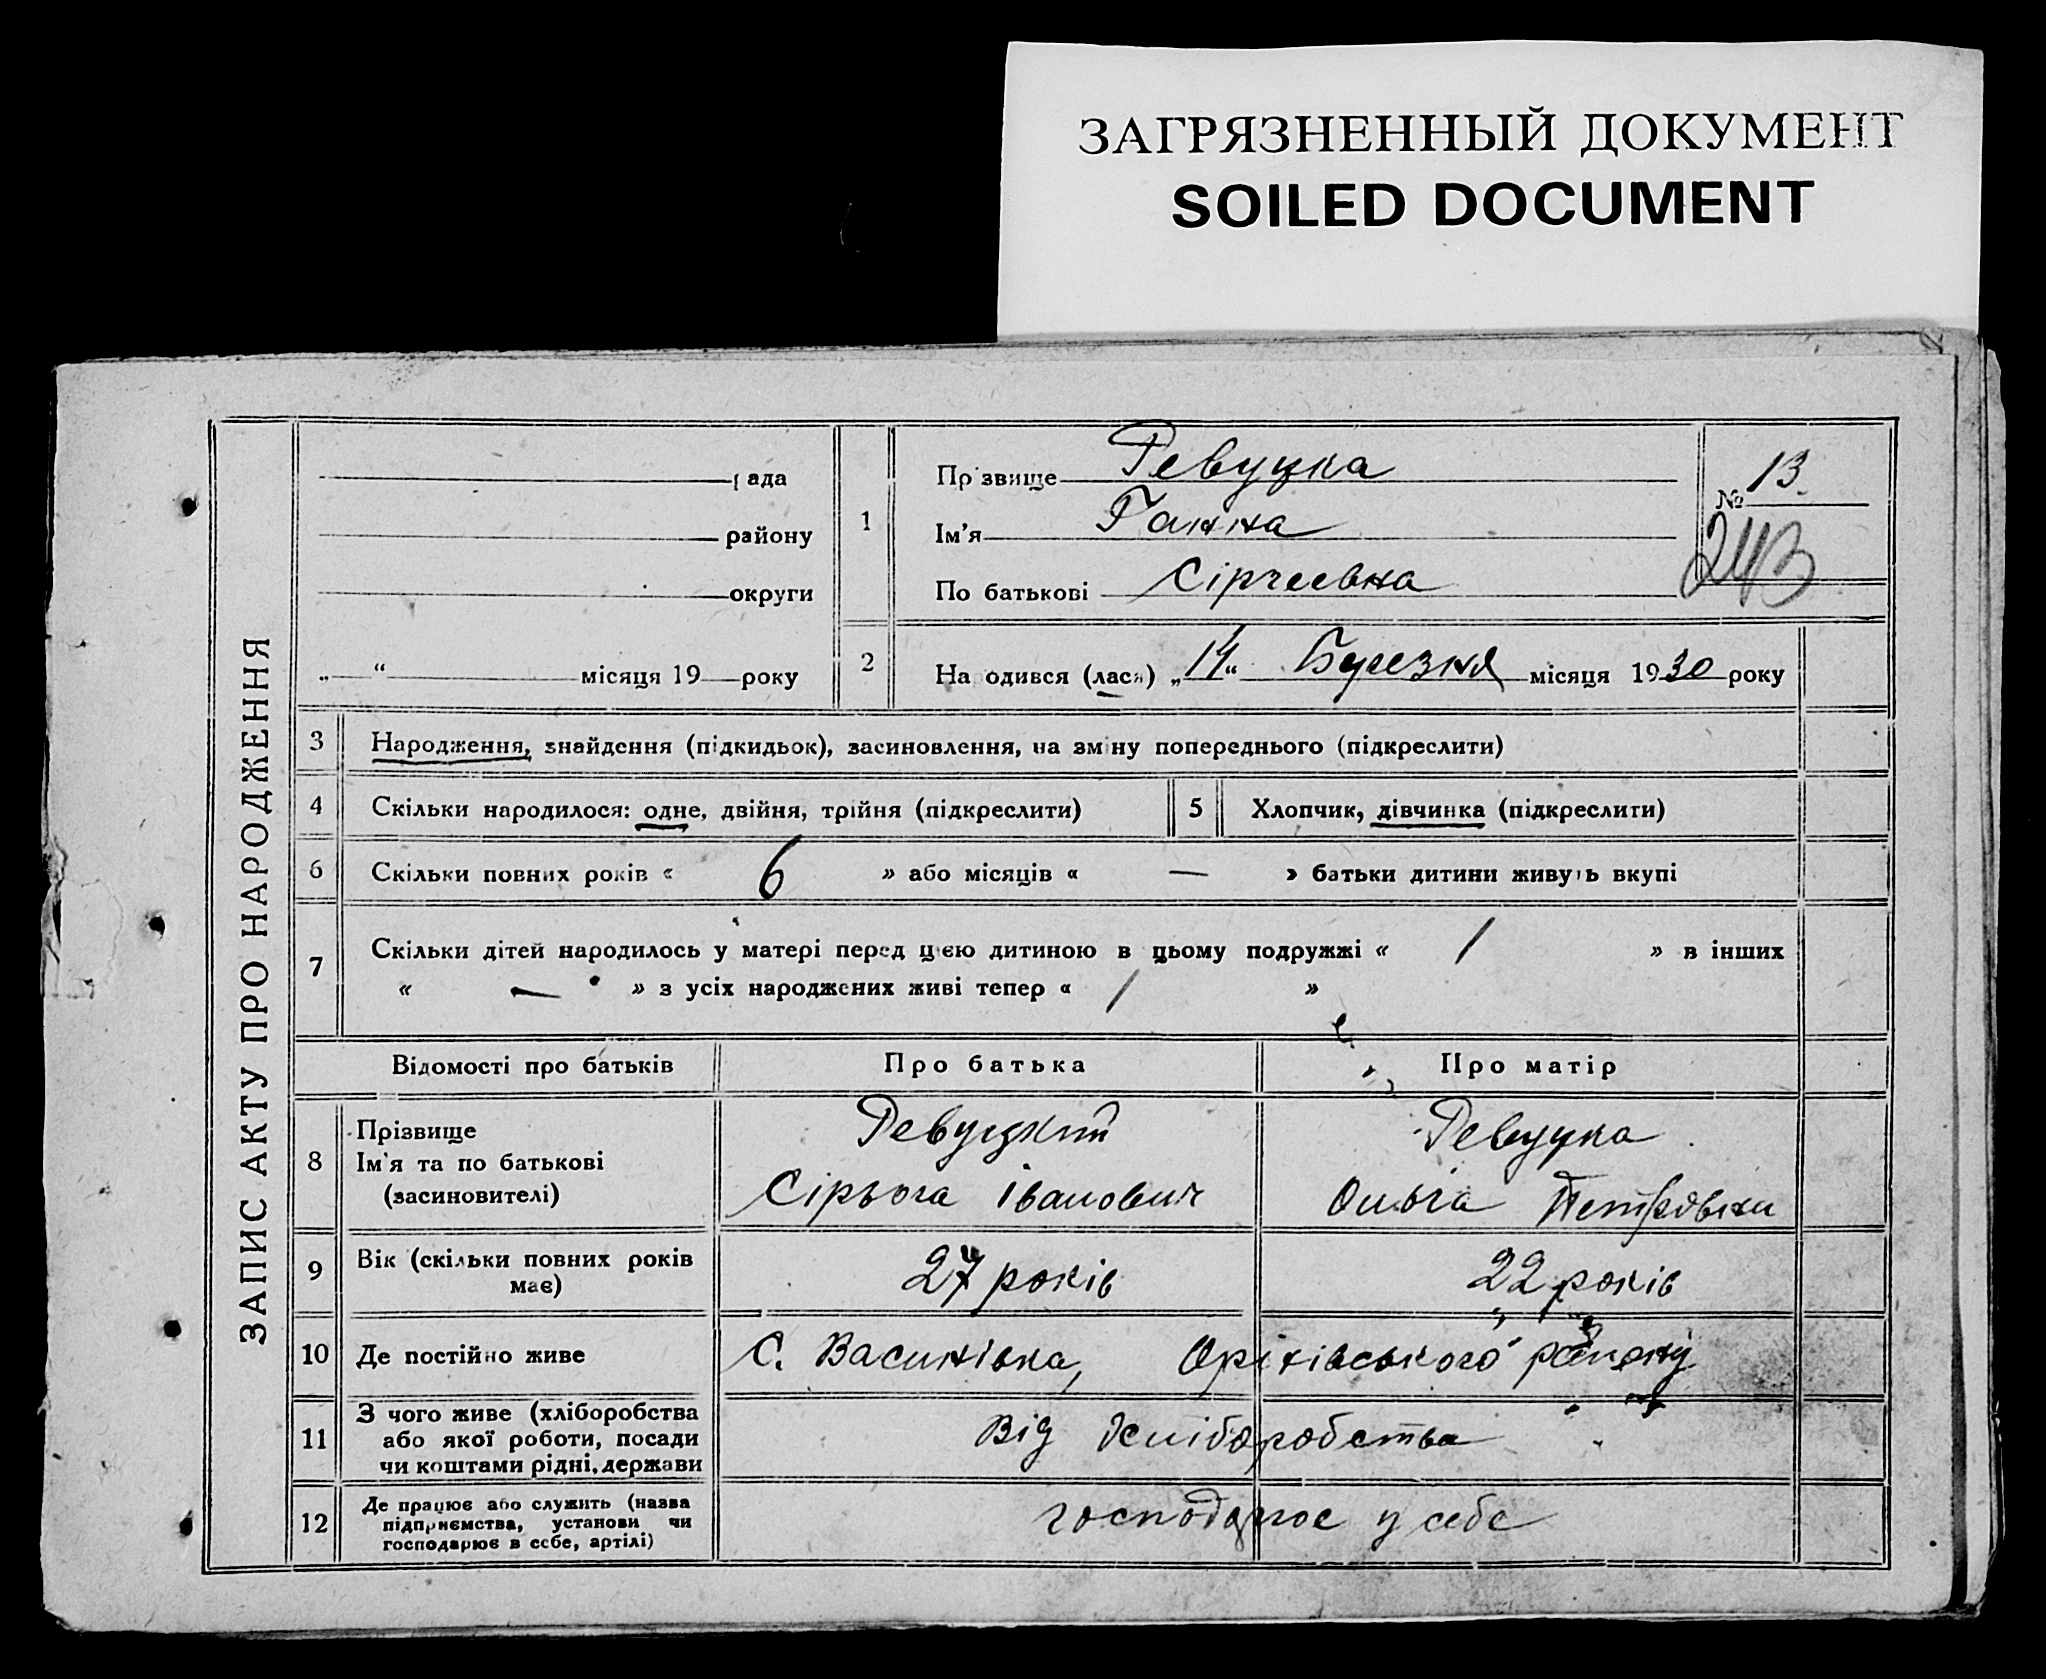 ЗАГРЯЗНЕННЫЙ ДОКУМЕНТ
SOILED DOCUMENT
ЗАПИС АКТУ ПРО НАРОДЖЕННЯ
рада
району
округи
„ “ місяця 19 року
1
Прізвище Ревуцка
Ім'я Ганна
По батькові Сіргеевна
№ 13
243
2
Народився (лася) „14“ Березня місяця 1930 року
3 Народження, знайдення (підкидьок), засиновлення, на зміну попереднього (підкреслити)
4 Скільки народилося: одне, двійня, трійня (підкреслити)
5 Хлопчик, дівчинка (підкреслити)
6 Скільки повних років « 6 » або місяців « — » батьки дитини живуть вкупі
7 Скільки дітей народилось у матері перед цією дитиною в цьому подружжі « 1 » в інших
« — » з усіх народжених живі тепер « 1 »
Відомості про батьків Про батька Про матір
8
Прізвище
Ім'я та по батькові
(засиновителі)
Ревуцкий
Сірьога Іванович
Ревуцка
Ольга Петровна
9
Вік (скільки повних років
має)
27 років
22 років
10 Де постійно живе
С. Василівка, Оріхівського району
11
З чого живе (хліборобства
або якої роботи, посади
чи коштами рідні, держави
Від Хліборобства
12
Де працює або служить (назва
підприємства, установи чи
господарює в себе, артілі)
господарює у себе